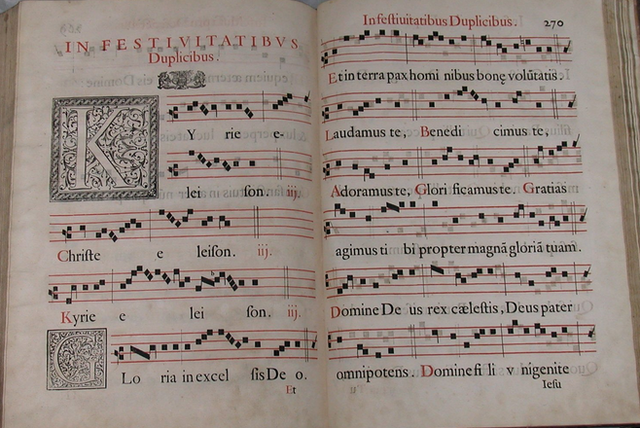 IN FESTIVITATIBVS
Duplicibus.
KYrie e-
lei ſon. iij.
Chriſte e leiſon. iij.
Kyrie e lei ſon. iij.
GLo ria in excel ſis De o.
Et
In feſtiuitatibus Duplicibus. 270
Et in terra pax homi nibus bonę volūtatis.
Laudamus te, Benedi cimus te.
Adoramus te, Glori ficamus te. Gratias
agimus ti bi propter magnā gloriā tuam.
Domine De us rex cælestis, Deus pater
omnipotens. Domine fi li v nigenite
Ieſu